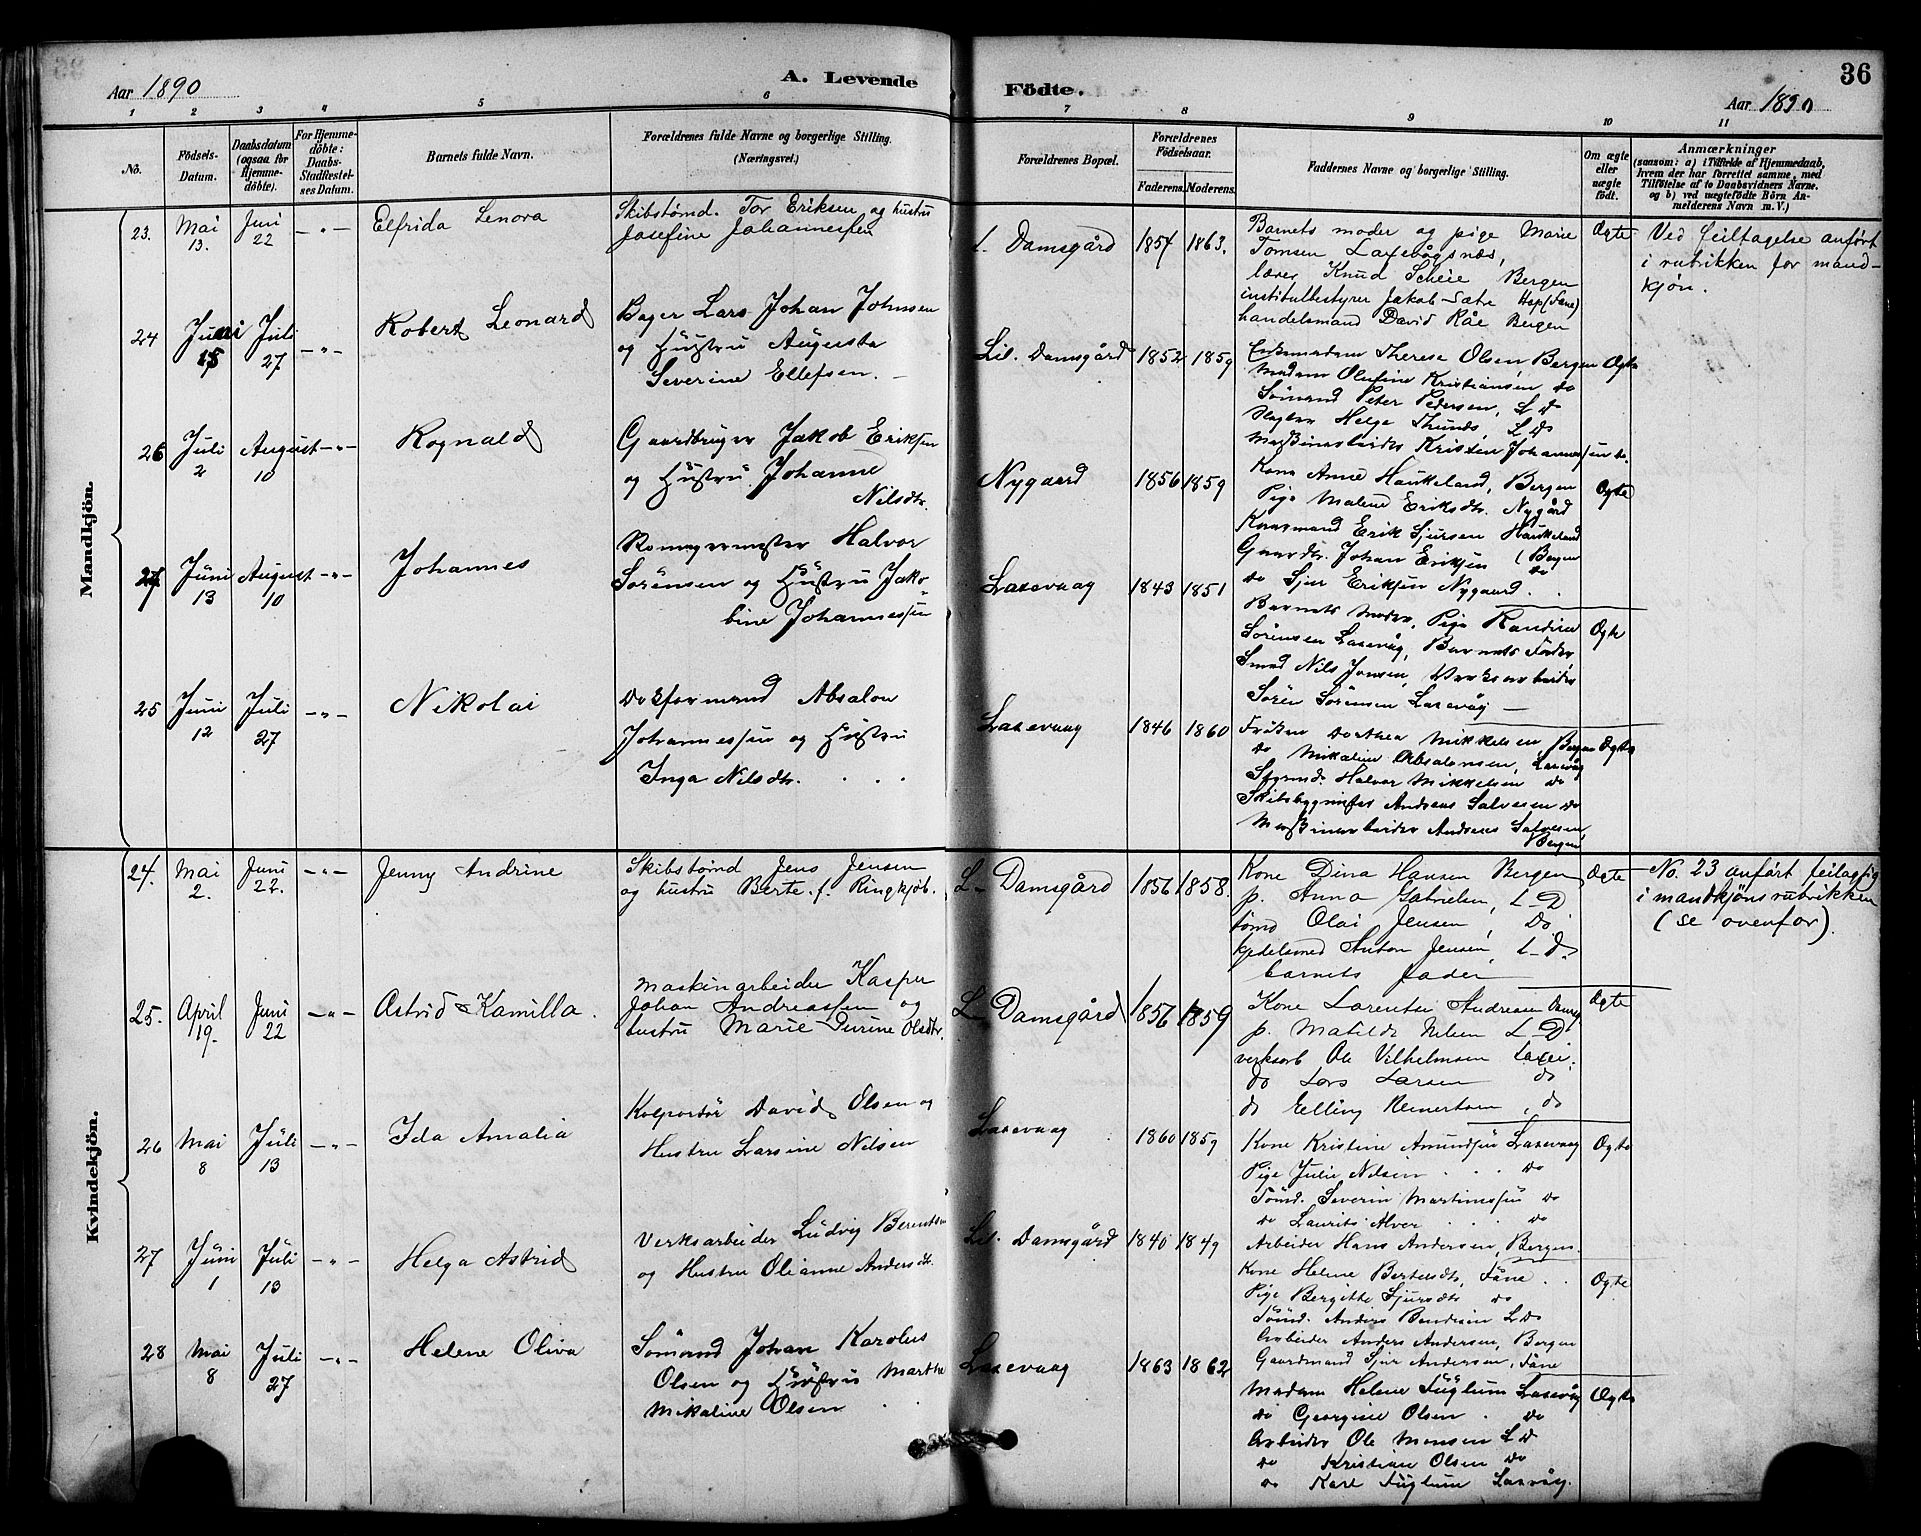 Aar 1890
A. Levende
Födte.
36
Aar 1890
1 2 3 4 5 6 7 8 9 10 11
No.
Födsels-Datum.
Daabsdatum (ogsaa for Hjemmedöbte).
For Hjemmedöbte: Daabs-Stadfæstelses Datum.
Barnets fulde Navn.
Forældrenes fulde Navne og borgerlige Stilling. (Næringsvei.)
Forældrenes Bopæl.
Forældrenes Födselsaar.
Faderens. Moderens.
Faddernes Navne og borgerlige Stilling.
Om ægte eller uægte födt.
Anmærkninger
(saasom: a) i Tilfælde af Hjemmedaab,
hvem der har forrettet samme, med
Tilföielse af to Daabsvidners Navne.
og b) ved uægtefödte Börn An-
melderens Navn m. V.)
Mandkjön.
23. Mai 13. Juni 22 — " — Elfrida Lenora
Skibstømd. Tor Eriksen og hustru
Josefine Johannesen
L. Damsgård 1857 1863.
Barnets moder og pige Marie
Tomsen Laxevågsnæs,
lærer Knud Scheie Bergen
institutbestyrer Jakob Sætre Hop (Fane)
handelsmand David Råe Bergen
Ægte
Ved feiltagelse anført
i rubrikken for mand-
kjön.
24 Juni 15 Juli 27 — " — Robert Leonard
Bager Lars Johan Johnsen
og Hustru Augusta
Severine Ellefsen. —
Lil. Damsgård 1852 1859
madam Therese Olsen Bergen
Madam Olufine Kristiansen do
Sömand Peter Pedersen, L D
Helge Thunes, L D
Maskinarbeider Kristen Johannessen do.
Ægte
26 Juli 2 August 10 — " — Rognald
Gaardbruger Jakob Eriksen
og Hustru Johanne
Nilsdtr.
Nygaard 1856 1859
Kone Anne Haukeland, Bergen
Pige Malene Eriksdtr. Nygård
Erik Sjursen Haukeland
Gaardbr. Johan Eriksen (Bergen
do Sjur Eriksen Nygaard.
Ægte
27 Juni 13 August 10 — " — Johannes
Halvor
Sörensen og Hustru Jako
bine Johannessen
Laxevaag 1843 1851
Barnets Moder, Pige Randine
Sörensen Laxevåg, Barnets Fader
Smed Nils Jonsen, Værksarbeider
Sören Sörensen Laxevåg —
Ægte
25 Juni 12 Juli 27 — " — Nikolai
Dokformand Absalon
Johannessen og Hustru
Inga Nilsdtr. . . .
Laxevaag 1846 1860
Fröken Dorthea Mikkelsen, Bergen
do Mikaline Absalonsen, Laxevåg
Styrmd. Halvor Mikkelsen do
Skibsbygmester Andreas Salvesen do
Maskinarbeider Andreas Salvesen,
Bergen
Ægte
Kvindekjön.
24. Mai 2. Juni 22. — " — Jenny Andrine
Skibstømd Jens Jensen
og hustru Berte f. Ringkjöb.
L- Damsgård 1856 1858.
Kone Dina Hansen Bergen
p. Anna Gabrielsen, L-D
tömd Olai Jensen, Do
kjedelsmed Anton Jensen, L-D.
barnets fader
Ægte
No. 23 anført feilagtig
i mandkjönsrubrikken
(se ovenfor).
25. April 19. Juni 22 — " — Astrid Kamilla.
Maskinarbeider Kasper
Johan Andreassen og
hustru Marie Gurine Olsdtr.
L Damsgård 1856 1859
Kone Larentse Andreasen
p. Matilde Nilsen L-D
verksarb Ole Vilhelmsen Laxev.
do Lars Larsen do
do Elling Reinertsen, do
Ægte
26 Mai 8 Juli 13 — " — Ida Amalia
Kolportör David Olsen og
Hustru Larsine Nilsen
Laxevaag 1860 1859
Kone Kristine Amundsen Laxevaag
Pige Julie Nilsen . . . do
Tömd. Severin Martinussen do
do Laurits Alver . . . do
Arbeider Hans Andersen, Bergen.
Ægte
27 Juni 1 Juli 13 — " — Helga Astrid
Verksarbeider Ludvig Berentsen
og Hustru Olianne Andersdtr.
Lil. Damsgård 1840 1849
Kone Helene Bertelsdtr, Fane . .
Pige Bergitte Sjursdtr do
Tömd. Anders L D
Arbeider Anders Andersen, Bergen
Gaardmand Sjur Andersen, Fane
Ægte
28 Mai 8 Juli 27 — " — Helene Oliva
Sömand Johan Karolus
Olsen og Hustru Marthe
Mikaline Olsen . .
Laxevaag 1863 1862
Madam Helene Fuglum Laxevåg
do Georgine Olsen . do
Arbeider Ole Monsen L D
do Kristian Olsen do
do Karl Fuglum Laxevåg.
Ægte